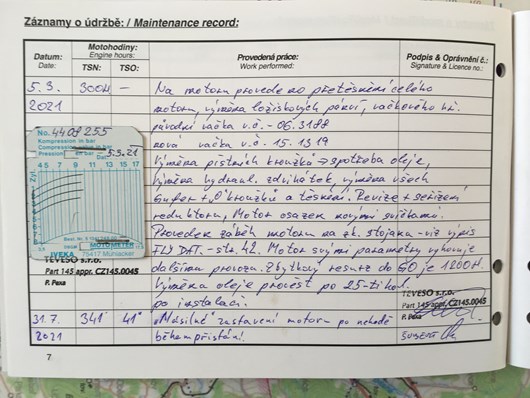 Záznamy o údržbě: / Maintenance record:
Datum: Date:
Motohodiny: Engine hours:
TSN: TSO:
Provedená práce: Work performed:
Podpis & Oprávnění č.: Signature & Licence no.:
5.3. 300H — Na motoru provedeno přetěsnění celého
2021 motoru, výměna ložiskových pánví, vačkového hř.
původní vačka v.č. - 06.3188
nová vačka v.č. 15.1319
Výměna pístních kroužků → spotřeba oleje,
výměna hydraul. zdvihátek, výměna všech
gufer + „O" kroužků a těsnění. Revize + seřízení
reduktoru, Motor osazen novými svíčkami.
Proveden záběh motoru na zk. stojaku - viz výpis
FLYDAT. - str. 42. Motor svými parametry vyhovuje
dalšímu provozu. Zbytkový resurz do GO je 1200H.
Výměna oleje provést po 25-ti hod.
po instalaci.
No. 4408255
Kompression in bar
Compression in bar
Pression en bar Dat. 5.3.21
4 5 7 9 11 13 15 17
Zyl.
Best. Nr.
MOTOMETER
IVEKA 75417 Mühlacker
TEVESO s.r.o.
Part 145 appr. CZ145.0045
P. Pexa
TEVESO s.r.o.
Part 145 appr. CZ145.0045
P. Pexa
31.7. 341" 41" „Násilné" zastavení motoru po nehodě
2021 během přistání.
7